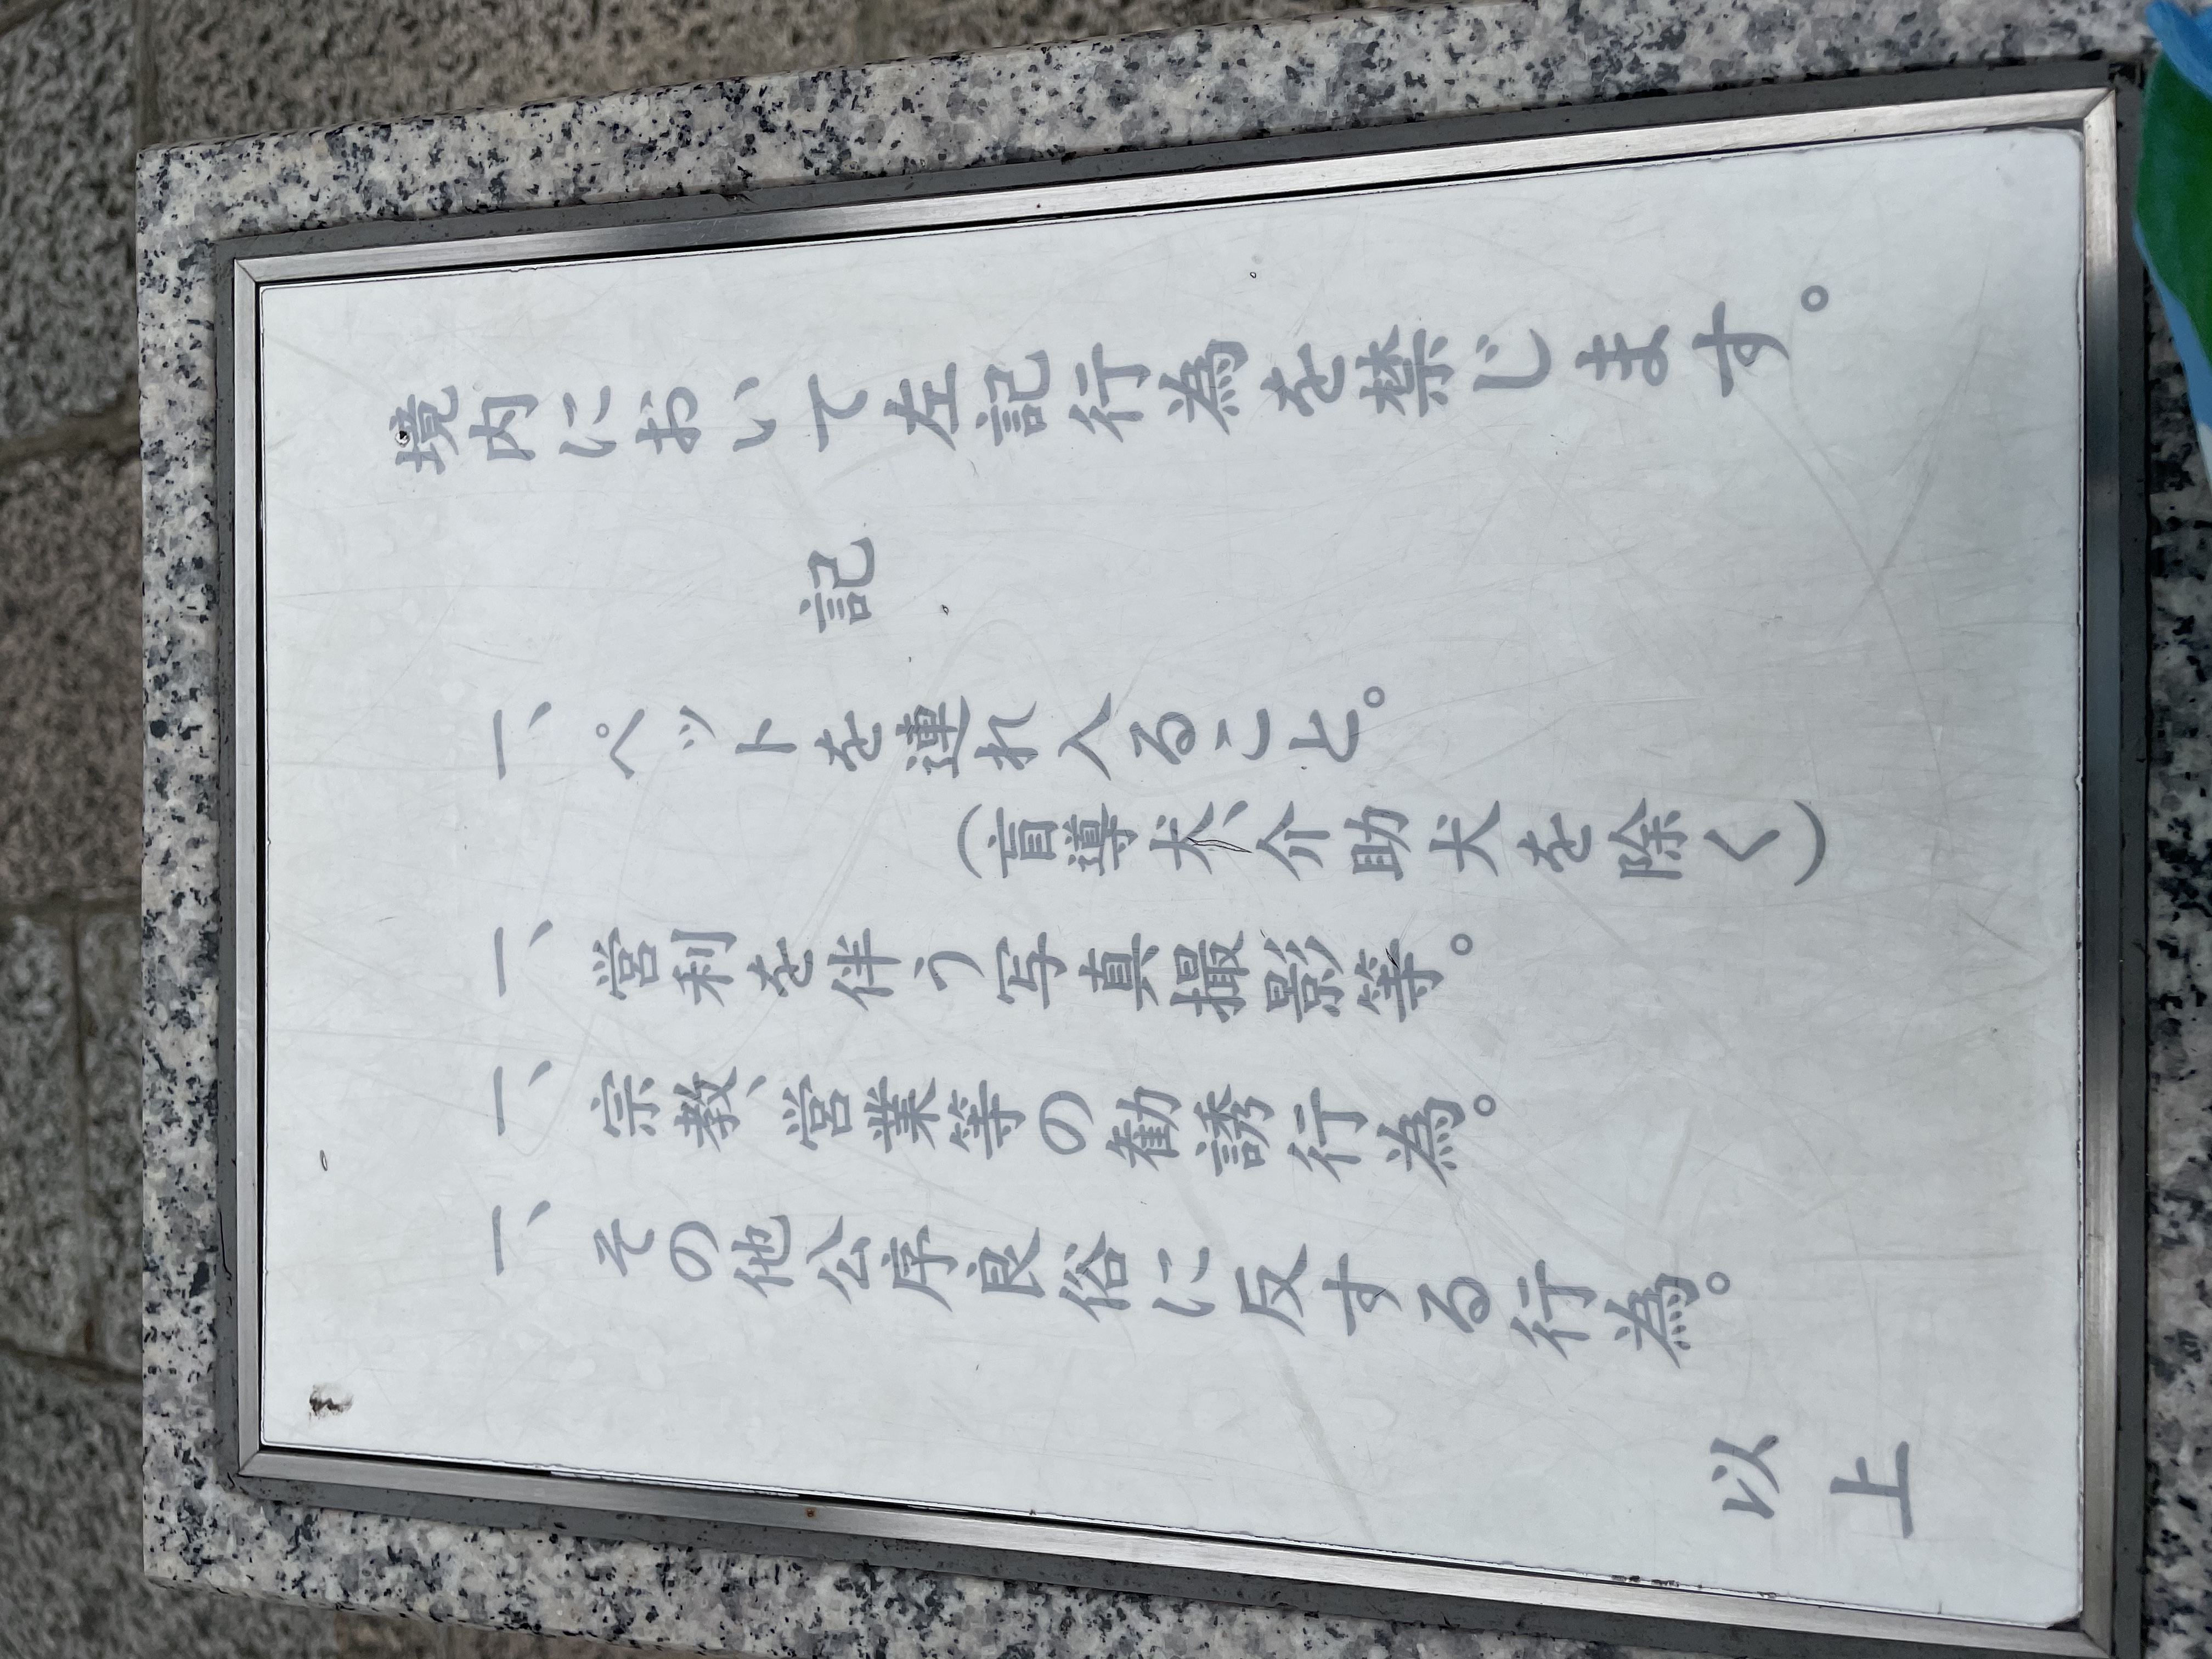 境内において左記行為を禁じます。
記
一、ペットを連れ入ること。
(盲導犬、介助犬を除く)
一、営利を伴う写真撮影等。
一、宗教、営業等の勧誘行為。
一、その他公序良俗に反する行為。
以上